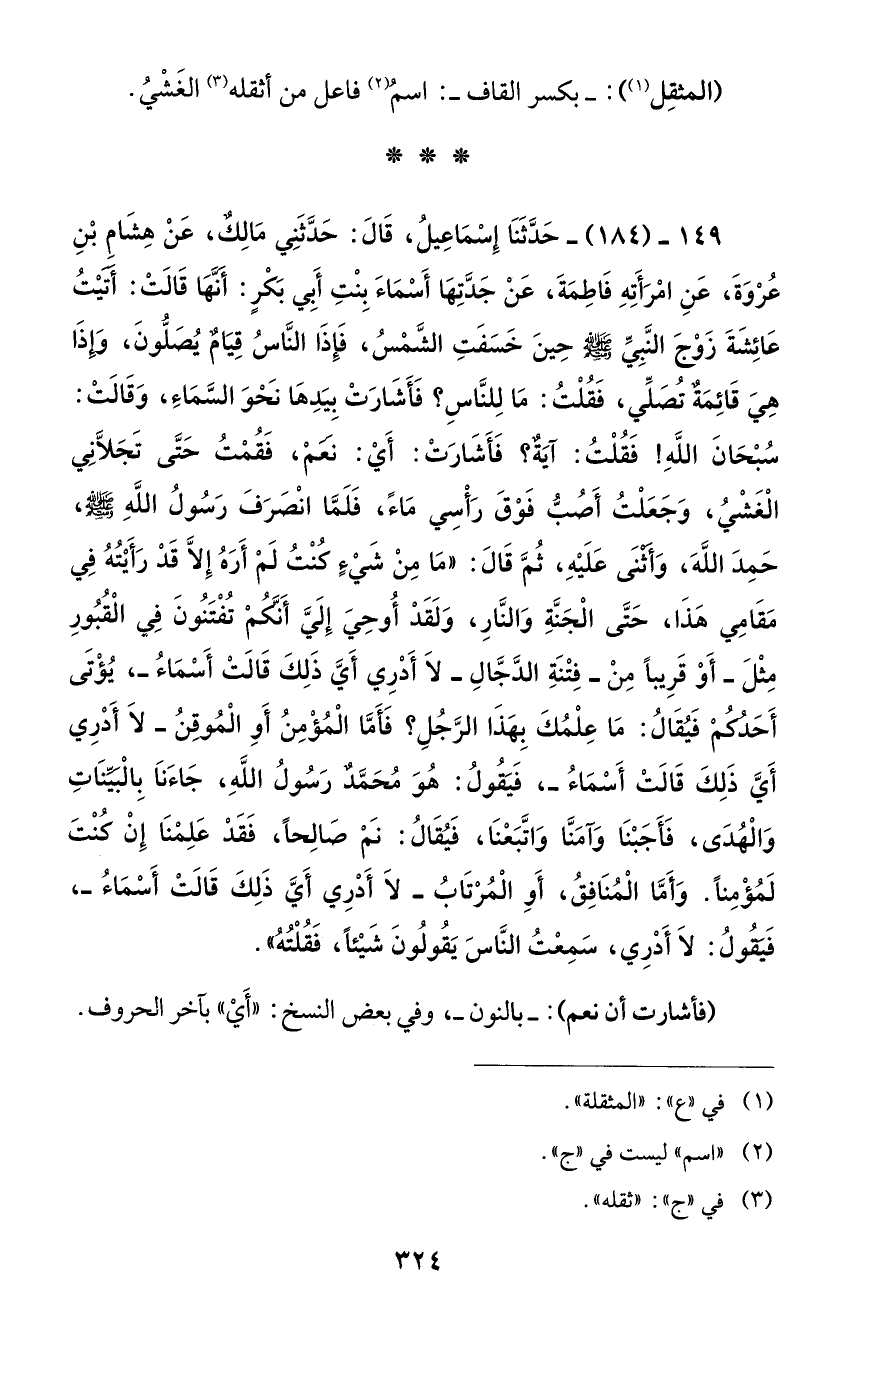 (المثقِل(١)): ـ بكسر القاف ـ: اسمُ(٢) فاعل من أثقله(٣) الغَشْيُ.
* * *
١٤٩ ـ (١٨٤) ـ حَدَّثَنَا إِسْمَاعِيلُ، قَالَ: حَدَّثَنِي مَالِكٌ، عَنْ هِشَامِ بْنِ
عُرْوَةَ، عَنِ امْرَأَتِهِ فَاطِمَةَ، عَنْ جَدَّتِهَا أَسْمَاءَ بِنْتِ أَبِي بَكْرٍ: أَنَّهَا قَالَتْ: أَتَيْتُ
عَائِشَةَ زَوْجَ النَّبِيِّ ﷺ حِينَ خَسَفَتِ الشَّمْسُ، فَإِذَا النَّاسُ قِيَامٌ يُصَلُّونَ، وَإِذَا
هِيَ قَائِمَةٌ تُصَلِّي، فَقُلْتُ: مَا لِلنَّاسِ؟ فَأَشَارَتْ بِيَدِهَا نَحْوَ السَّمَاءِ، وَقَالَتْ:
سُبْحَانَ اللَّهِ! فَقُلْتُ: آيَةٌ؟ فَأَشَارَتْ: أَيْ: نَعَمْ، فَقُمْتُ حَتَّى تَجَلاَّنِي
الْغَشْيُ، وَجَعَلْتُ أَصُبُّ فَوْقَ رَأْسِي مَاءً، فَلَمَّا انْصَرَفَ رَسُولُ اللَّهِ ﷺ،
حَمِدَ اللَّهَ، وَأَثْنَى عَلَيْهِ، ثُمَّ قَالَ: «مَا مِنْ شَيْءٍ كُنْتُ لَمْ أَرَهُ إِلاَّ قَدْ رَأَيْتُهُ فِي
مَقَامِي هَذَا، حَتَّى الْجَنَّةِ وَالنَّارِ، وَلَقَدْ أُوحِيَ إِلَيَّ أَنَّكُمْ تُفْتَنُونَ فِي الْقُبُورِ
مِثْلَ ـ أَوْ قَرِيباً مِنْ ـ فِتْنَةِ الدَّجَّالِ ـ لاَ أَدْرِي أَيَّ ذَلِكَ قَالَتْ أَسْمَاءُ ـ، يُؤْتَى
أَحَدُكُمْ فَيُقَالُ: مَا عِلْمُكَ بِهَذَا الرَّجُلِ؟ فَأَمَّا الْمُؤْمِنُ أَوِ الْمُوقِنُ ـ لاَ أَدْرِي
أَيَّ ذَلِكَ قَالَتْ أَسْمَاءُ ـ، فَيَقُولُ: هُوَ مُحَمَّدٌ رَسُولُ اللَّهِ، جَاءَنَا بِالْبَيِّنَاتِ
وَالْهُدَى، فَأَجَبْنَا وَآمَنَّا وَاتَّبَعْنَا، فَيُقَالُ: نَمْ صَالِحاً، فَقَدْ عَلِمْنَا إِنْ كُنْتَ
لَمُؤْمِناً. وَأَمَّا الْمُنَافِقُ، أَوِ الْمُرْتَابُ ـ لاَ أَدْرِي أَيَّ ذَلِكَ قَالَتْ أَسْمَاءُ ـ،
فَيَقُولُ: لاَ أَدْرِي، سَمِعْتُ النَّاسَ يَقُولُونَ شَيْئاً، فَقُلْتُهُ».
(فأشارت أن نعم): ـ بالنون ـ، وفي بعض النسخ: «أَيْ» بآخر الحروف.
(١) في «ع»: «المثقلة».
(٢) «اسم» ليست في «ج».
(٣) في «ج»: «ثقله».
٣٢٤